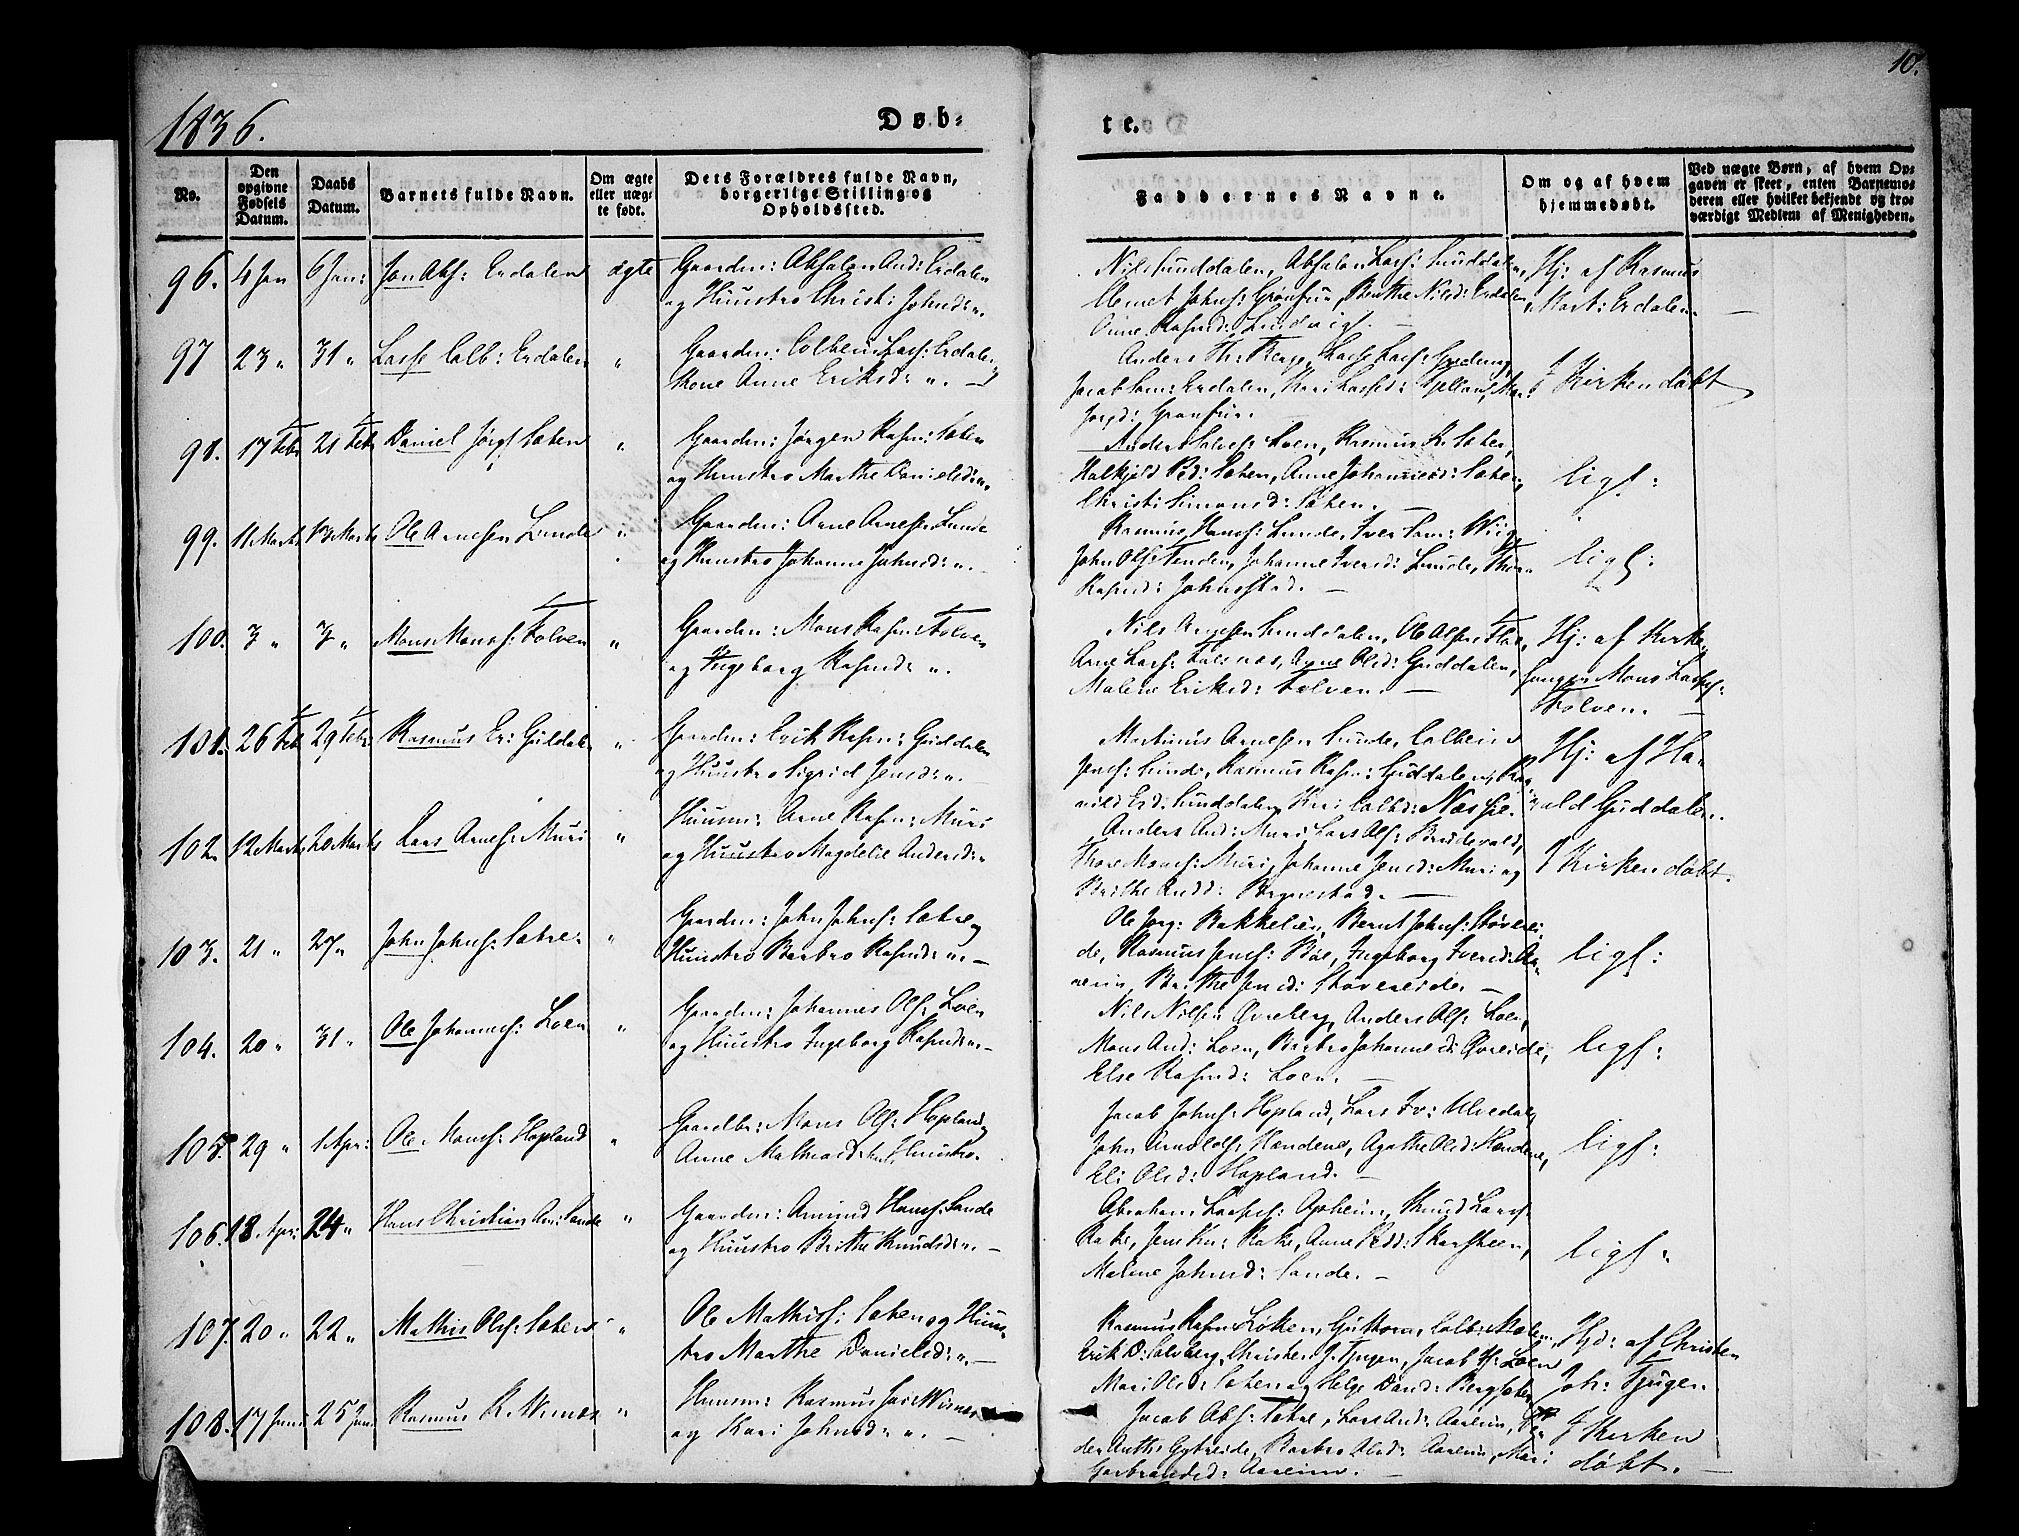 10.
1836.
Døb-
te.
No.
Den
opgivne
Fødsels
Datum.
Daabs
Datum.
Barnets fulde Navn.
Om ægte
eller uæg-
te født.
Dets Forældres fulde Navn,
borgerlige Stilling og
Opholdssted.
Faddernes Navne.
Om og af hvem
hjemmedøbt.
Ved uægte Børn, af hvem Op-
gaven er skeet, enten Barnemo-
deren eller hvilket bekjendt og tro-
værdigt Medlem af Menigheden.
96. 4 Jan 6 Jan: Jon Abs: Erdalen ægte
Gaardm: Absalon And: Erdalen
og Huustro Christi Johnsd: „.
Nils Sunddalen, Absalon Lass: Sunddalen,
Clemet Johns: Grønfur, Berthe Nilsd: Erdalen,
Anne Rasmd:
Hj: af Rasmus
Mart: Erdalen. —
97 23 „ 31 „ Lasse Colb: Erdalen „
Gaardm: Colbein Lass: Erdalen
Kone Anne Eriksd: „. —
Anders
Jacob Erdalen,
Grønfur.
I Kirken døbt
98. 17 Febr 21 Febr Daniel Jørgs Sæten „
Gaardm: Jørgen Rasm: Sæten
og Huustro Marthe Danielsd: „.
Anders Loen, Rasmus R. Sæten,
Ped: Sæten, Anne Johannesd: Sæten,
Christi Simonsd: Sæten. —
ligs:
99. 11 Marts 13 Marts Ole Arnesen Lunde „
Gaardm: Arne Arnesen Lunde
og Huustro Johanne Johnsd: „. —
Rasmus Hans: Lunde, Iver
John Ols: Tenden, Johanne Iversd: Lunde,
Rasmd: Johnstad. —
ligs:
100. 3 „ 3 „ Mons Mons: Folven „
Gaardm: Mons Rasm: Folven
og Ingeborg Rasmd: „.
Nils Arnesen Sunddalen, Ole Olsen Flo,
Arne Lars: Anne Olsd: Guddalen,
Malene Eriksd: Folven. —
Hj: af Kirke-
sanger Mons Lasses:
Folven. —
101. 26 Feb 29 Febr: Rasmus Er: Guddalen „
Gaardm: Erik Rasm: Guddalen
og Huustro Sigrid Jensd: „.
Martinus Arnesen Sunde, Colbein
Jens: Sunde, Rasmus Rasm: Guddalen, Rag-
nild Ersd: Sunddalen,
Hj: af Ha-
rald Guddalen.
102. 12 Marts 20 Marts Lars Arnes: Muri „
Huusm: Arne Rasm: Muri
og Huustro Magdelie Andersd: „
Anders And: Muri, Lars Ols: Brudevold,
Thore Mons: Muri, Johanne Jensd: Muri og
Brithe Andd: —
I Kirken døbt.
103. 21 „ 27 „ John Johns: Sætre. „
Gaardm: John Johns: Sætre og
Huustro Barbro Rasmd: „. —
Ole Jørg: Bakkelien, Bernt Johns: Støverei-
de, Rasmus Jens: Bøe, Ingeborg Iversd: Aa-
reim, Brithe Jensd: Støvereide. —
ligs:
104. 20 „ 31 „ Ole Johannes: Loen „
Gaardm: Johannes Ols: Loen
og Huustro Ingeborg Rasmd: „. —
Nils Nilsen Øvreberg, Anders Ols: Loen,
Mons And: Loen, Barbro Johannesd: Øvreide,
Else Rasmd: Loen. —
ligs:
105. 29 „ 1 Apr: Ole Mons: Hopland „
Gaardbr: Mons Ols: Hopland og
Anne Mathiasd: hans Huustro.
Jacob Johns: Hopland, Lars Iv: Ulvedal,
John Arnolds: Hændene, Agathe Olsd: Hændene,
Eli Olsd: Hopland. —
ligs:
106. 18 Apr: 24 „ Hans Christian Am: Sande „
Gaardm: Amund Hans: Sande
og Huustro Brithe Knudsd: „. —
Abraham Lasses: Apsheim, Knud Lars:
Rake, Jens Kn: Rake, Anne Pedd: Skarsteen,
Malene Johnsd: Sande. —
ligs:
107. 20 „ 22 „ Mathis Ols: Sæten „
Ole Mathis: Sæten og Huus-
tro Marthe Danielsd: „. —
Rasmus Rasm: Løken, Guttorm Colb: Melen,
Erik D: Solberg, Christen J. Tjugen, Jacob H: Loen
Mari Olsd: Sæten og Helge Dand: Berg
Hjd: af Christen
Joh: Tjugen.
108. 17 Juni 25 Juni Rasmus R. Wemes „
Huusm: Rasmus
og Kari Johnsd: „. —
Jacob Abs: Sætre, Lars And: Aareim, Pe-
der Anths: Gytreide, Barbro Olsd: Aareim, Mari
Gulbrandsd: Aareim. —
I Kirken
døbt. —